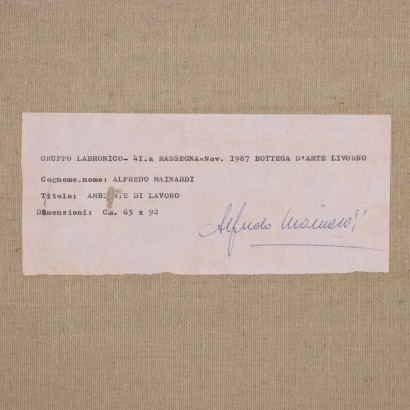 GRUPPO LABRONICO- 4I.a RASSEGNA-Nov. I987 BOTTEGA D'ARTE LIVORNO
Cognome,nome: ALFREDO MAINARDI
Titolo: AMBIENTE DI LAVORO
Dimensioni: Cm. 65 x 92
Alfredo Mainardi